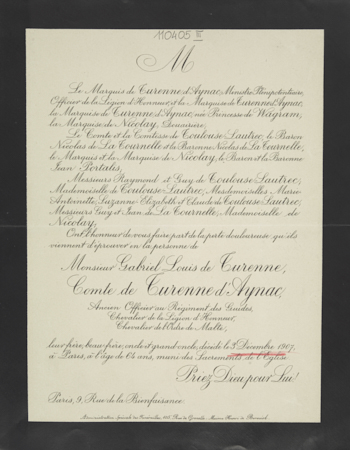 110405 III
M
Le Marquis de Turenne d'Aynac, Ministre Plénipotentiaire,
Officier de la Légion d'Honneur et la Marquise de Turenne d'Aynac,
la Marquise de Turenne d'Aynac, née Princesse de Wagram,
la Marquise de Nicolay, Douairière,
Le Comte et la Comtesse de Toulouse-Lautrec, le Baron
Nicolas de La Tournelle et la Baronne Nicolas de La Tournelle,
le Marquis et la Marquise de Nicolay, le Baron et la Baronne
Jean Portalis,
Messieurs Raymond et Guy de Toulouse-Lautrec,
Mademoiselle de Toulouse-Lautrec, Mesdemoiselles Marie-
Antoinette, Suzanne Elizabeth et Claude de Toulouse-Lautrec,
Messieurs Guy et Jean de La Tournelle, Mademoiselle de
Nicolay,
Ont l'honneur de vous faire part de la perte douloureuse qu'ils
viennent d'éprouver en la personne de
Monsieur Gabriel Louis de Turenne,
Comte de Turenne d'Aynac,
Ancien Officier au Régiment des Guides,
Chevalier de la Légion d'Honneur,
Chevalier de l'Ordre de Malte,
leur frère, beau-frère, oncle et grand-oncle, décédé le 3 Décembre 1907,
à Paris, à l'âge de 64 ans, muni des Sacrements de l'Église.
Priez Dieu pour Lui!
Paris, 9, Rue de la Bienfaisance.